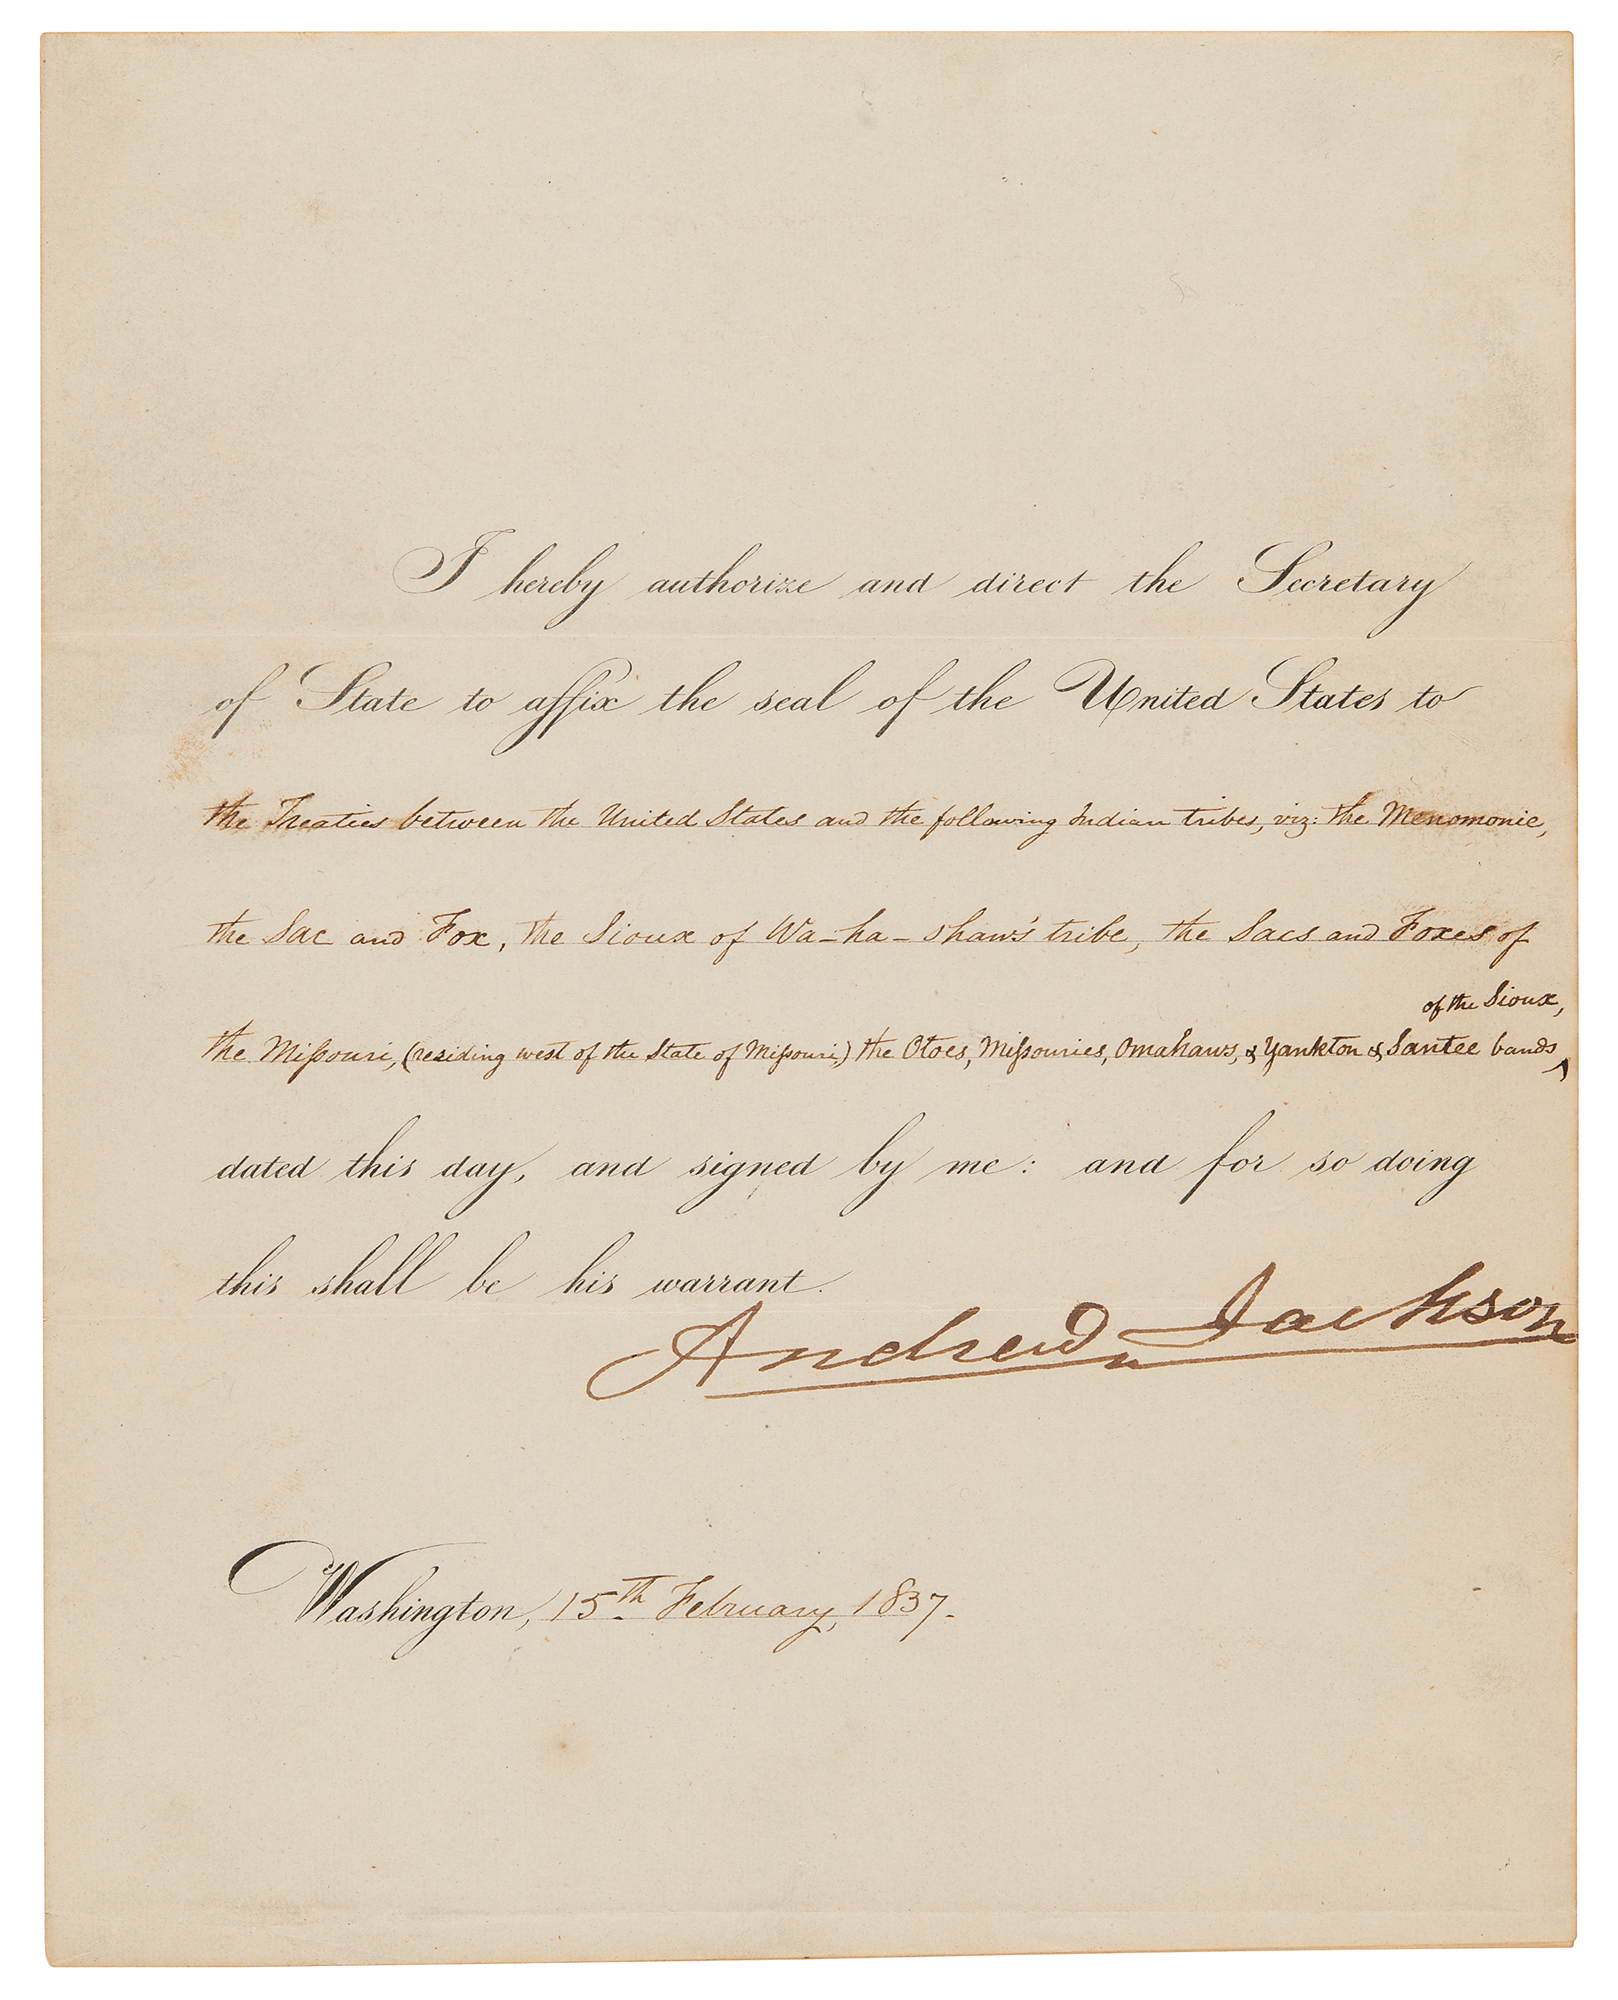 I hereby authorize and direct the Secretary
of State to affix the seal of the United States to
the Treaties between the United States and the following Indian tribes, viz: the Menomonie,
the Sac and Fox, the Sioux of Wa-ha-shaw's tribe, the Sacs and Foxes of
of the Sioux,
the Missouri, (residing west of the State of Missouri,) the Otoes, Missouries, Omahaws, & Yankton & Santee bands ‸
dated this day, and signed by me: and for so doing
this shall be his warrant.
Andrew Jackson
Washington, 15th February, 1837.